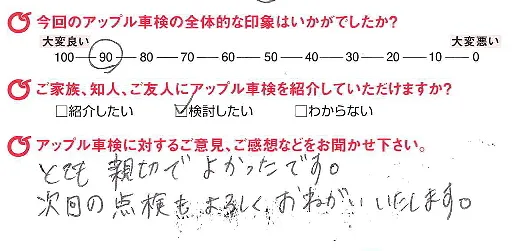 今回のアップル車検の全体的な印象はいかがでしたか?
大変良い 大変悪い
100 90 80 70 60 50 40 30 20 10 0
ご家族、知人、ご友人にアップル車検を紹介していただけますか?
□紹介したい ☑検討したい □わからない
アップル車検に対するご意見、ご感想などをお聞かせ下さい。
とても親切でよかったです。
次回の点検もよろしくおねがいいたします。